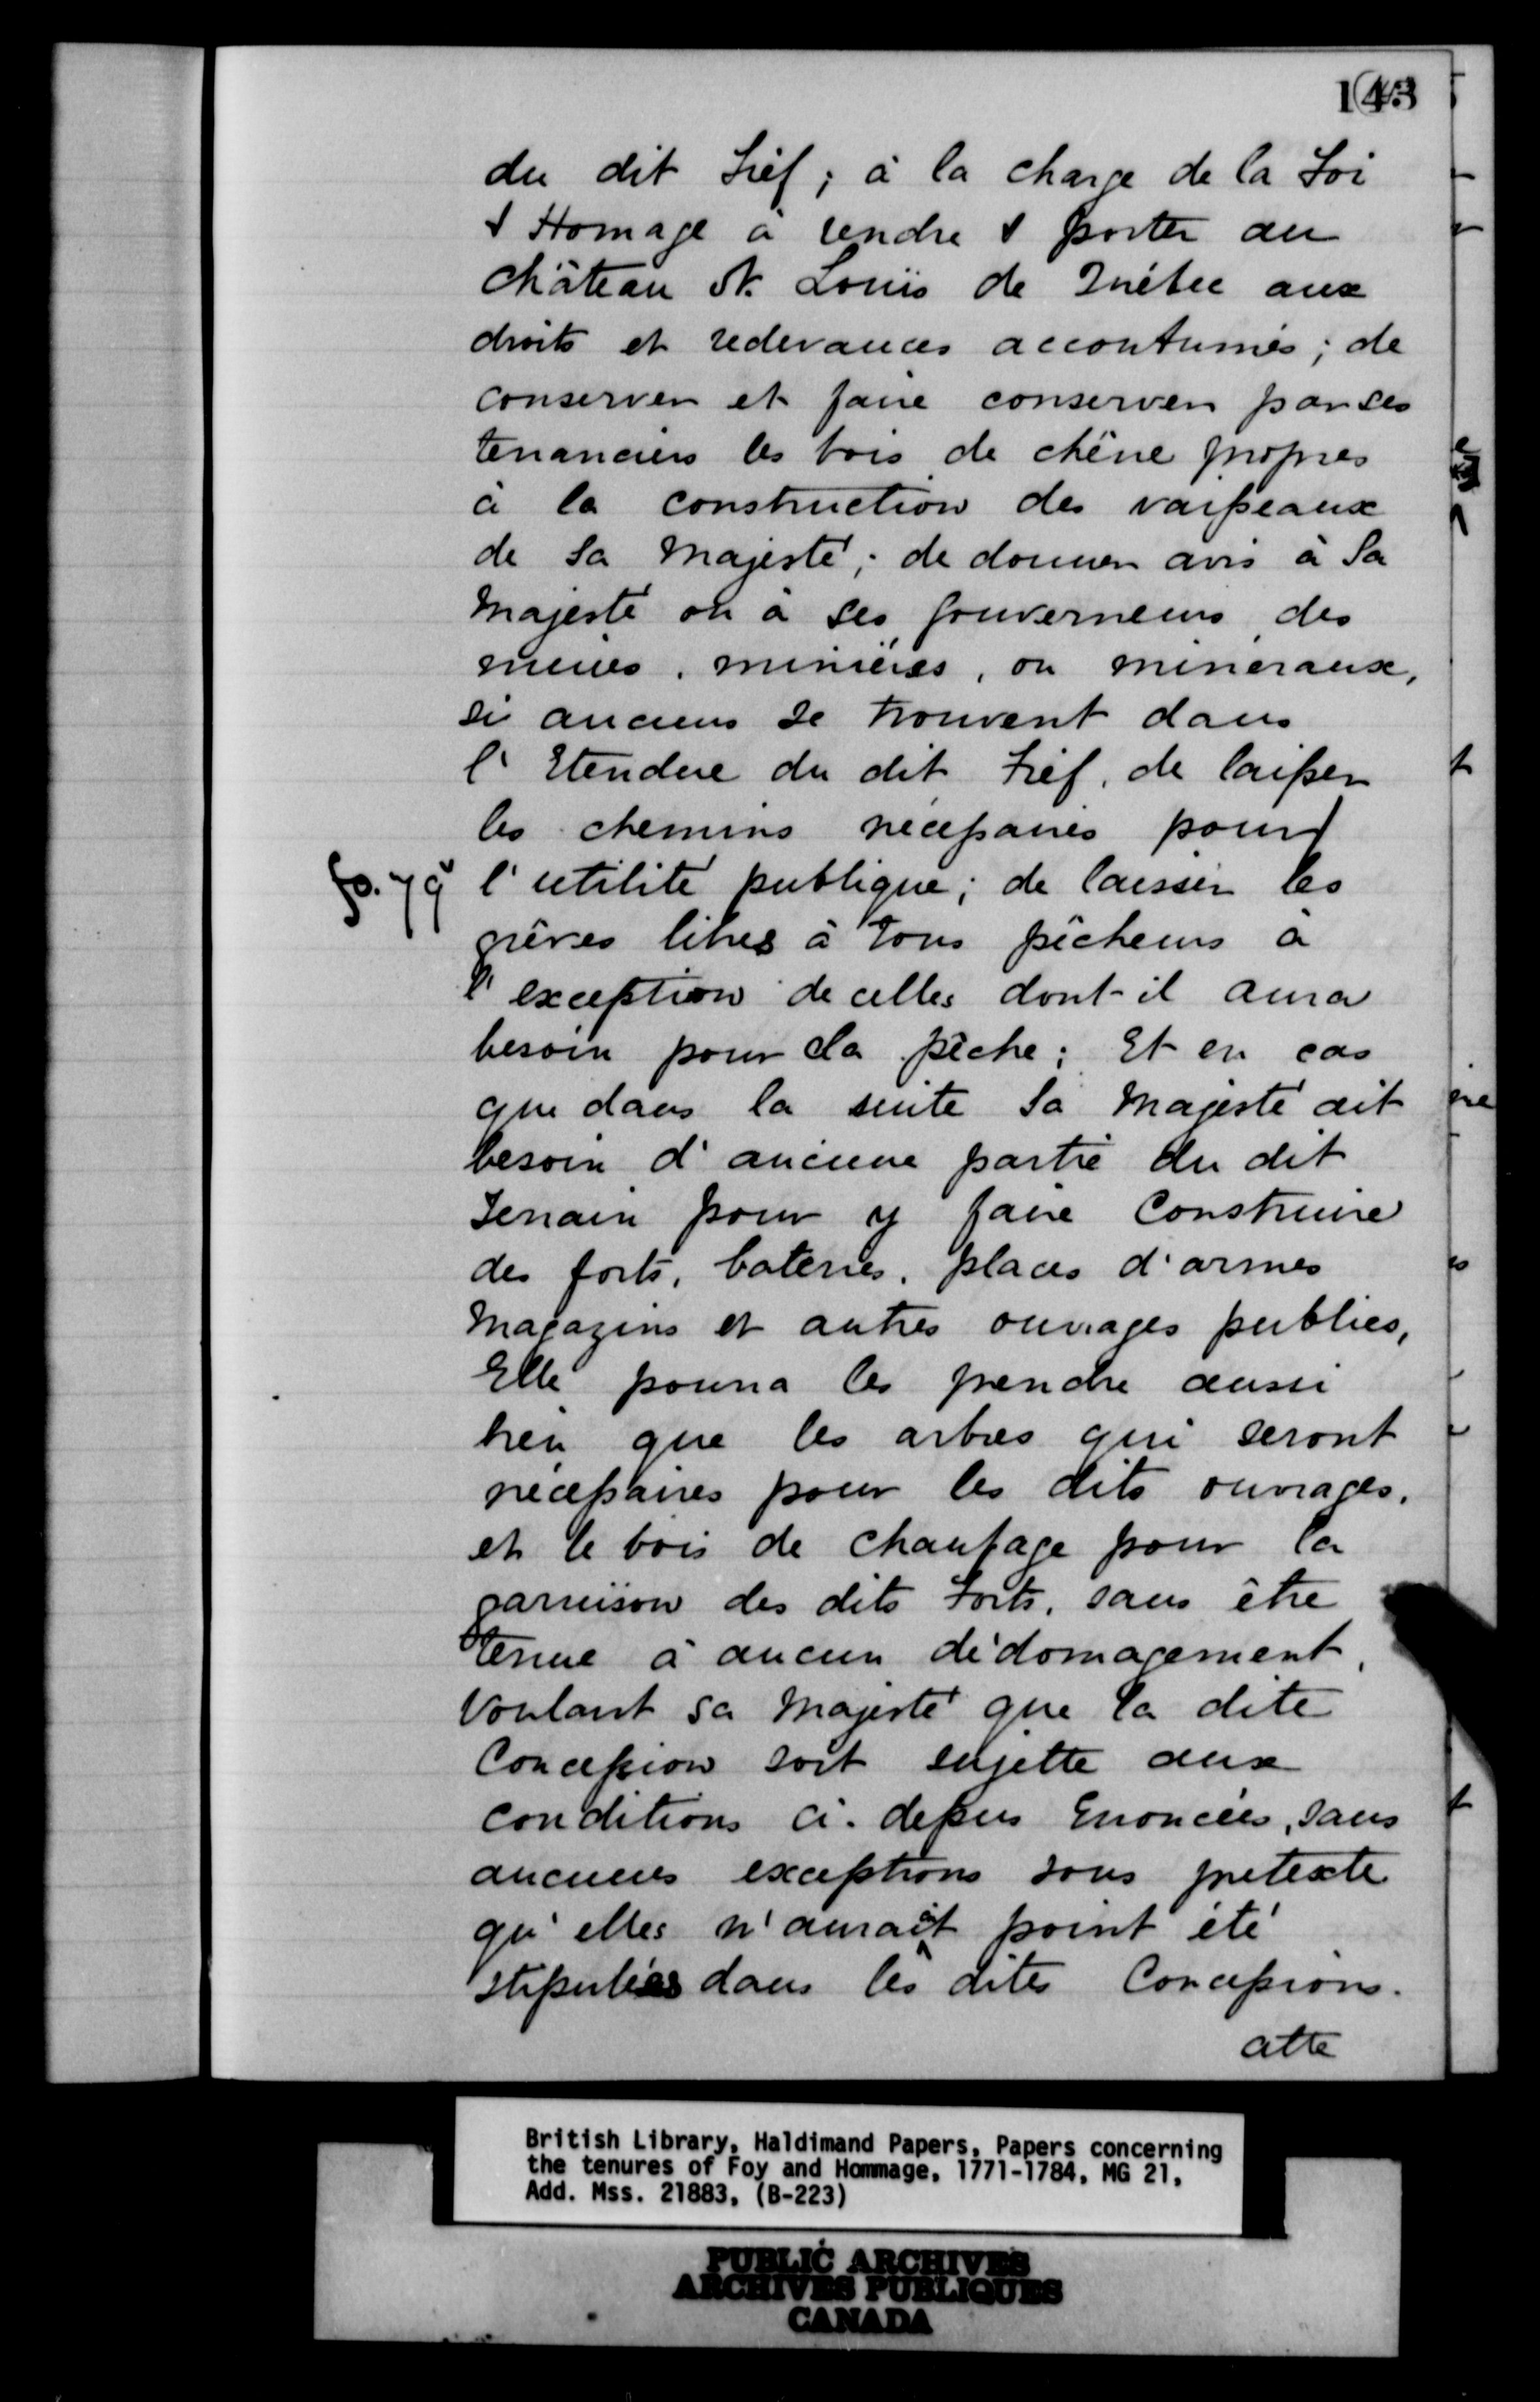 143
du dit Fief; à la charge de la Foi
& Homage à rendre & porter au
Château St. Louis de Québec aux
droits et redevances accoutumés; de
conserver et faire conserver par ses
tenanciers les bois de chêne propres
à la construction des vaisseaux
de Sa Majesté; de donner avis à Sa
Majesté ou à ses Gouverneurs, des
mines, minières, ou mineraux,
si aucuns se trouvent dans
l'Etendue du dit Fief, de laisser
les chemins nécessaires pour
fo. 79v l'utilité publique; de laisser les
grèves libres à tous pêcheurs à
l'exception de celles dont-il aura
besoin pour sa pêche; Et en cas
que dans la suite Sa Majesté ait
besoin d'aucune partie du dit
Terrain pour y faire Construire
des forts, bateries, places d'armes
Magazins et autres ouvrages publics,
Elle pourra les prendre aussi
bien que les arbres qui seront
nécessaires pour les dits ouvrages,
et le bois de chaufage pour la
garnison des dits Forts, sans être
tenue à aucun dédomagement,
Voulant sa Majesté que la dite
Concession soit sujette aux
conditions ci-dessus Enoncées, sans
aucunes exceptions sous pretexte
qu'elles n'aurait point été
stipulées dans les dites Concessions.
atte
British Library, Haldimand Papers, Papers concerning
the tenures of Foy and Hommage, 1771-1784, MG 21,
Add. Mss. 21883, (B-223)
PUBLIC ARCHIVES
ARCHIVES PUBLIQUES
CANADA